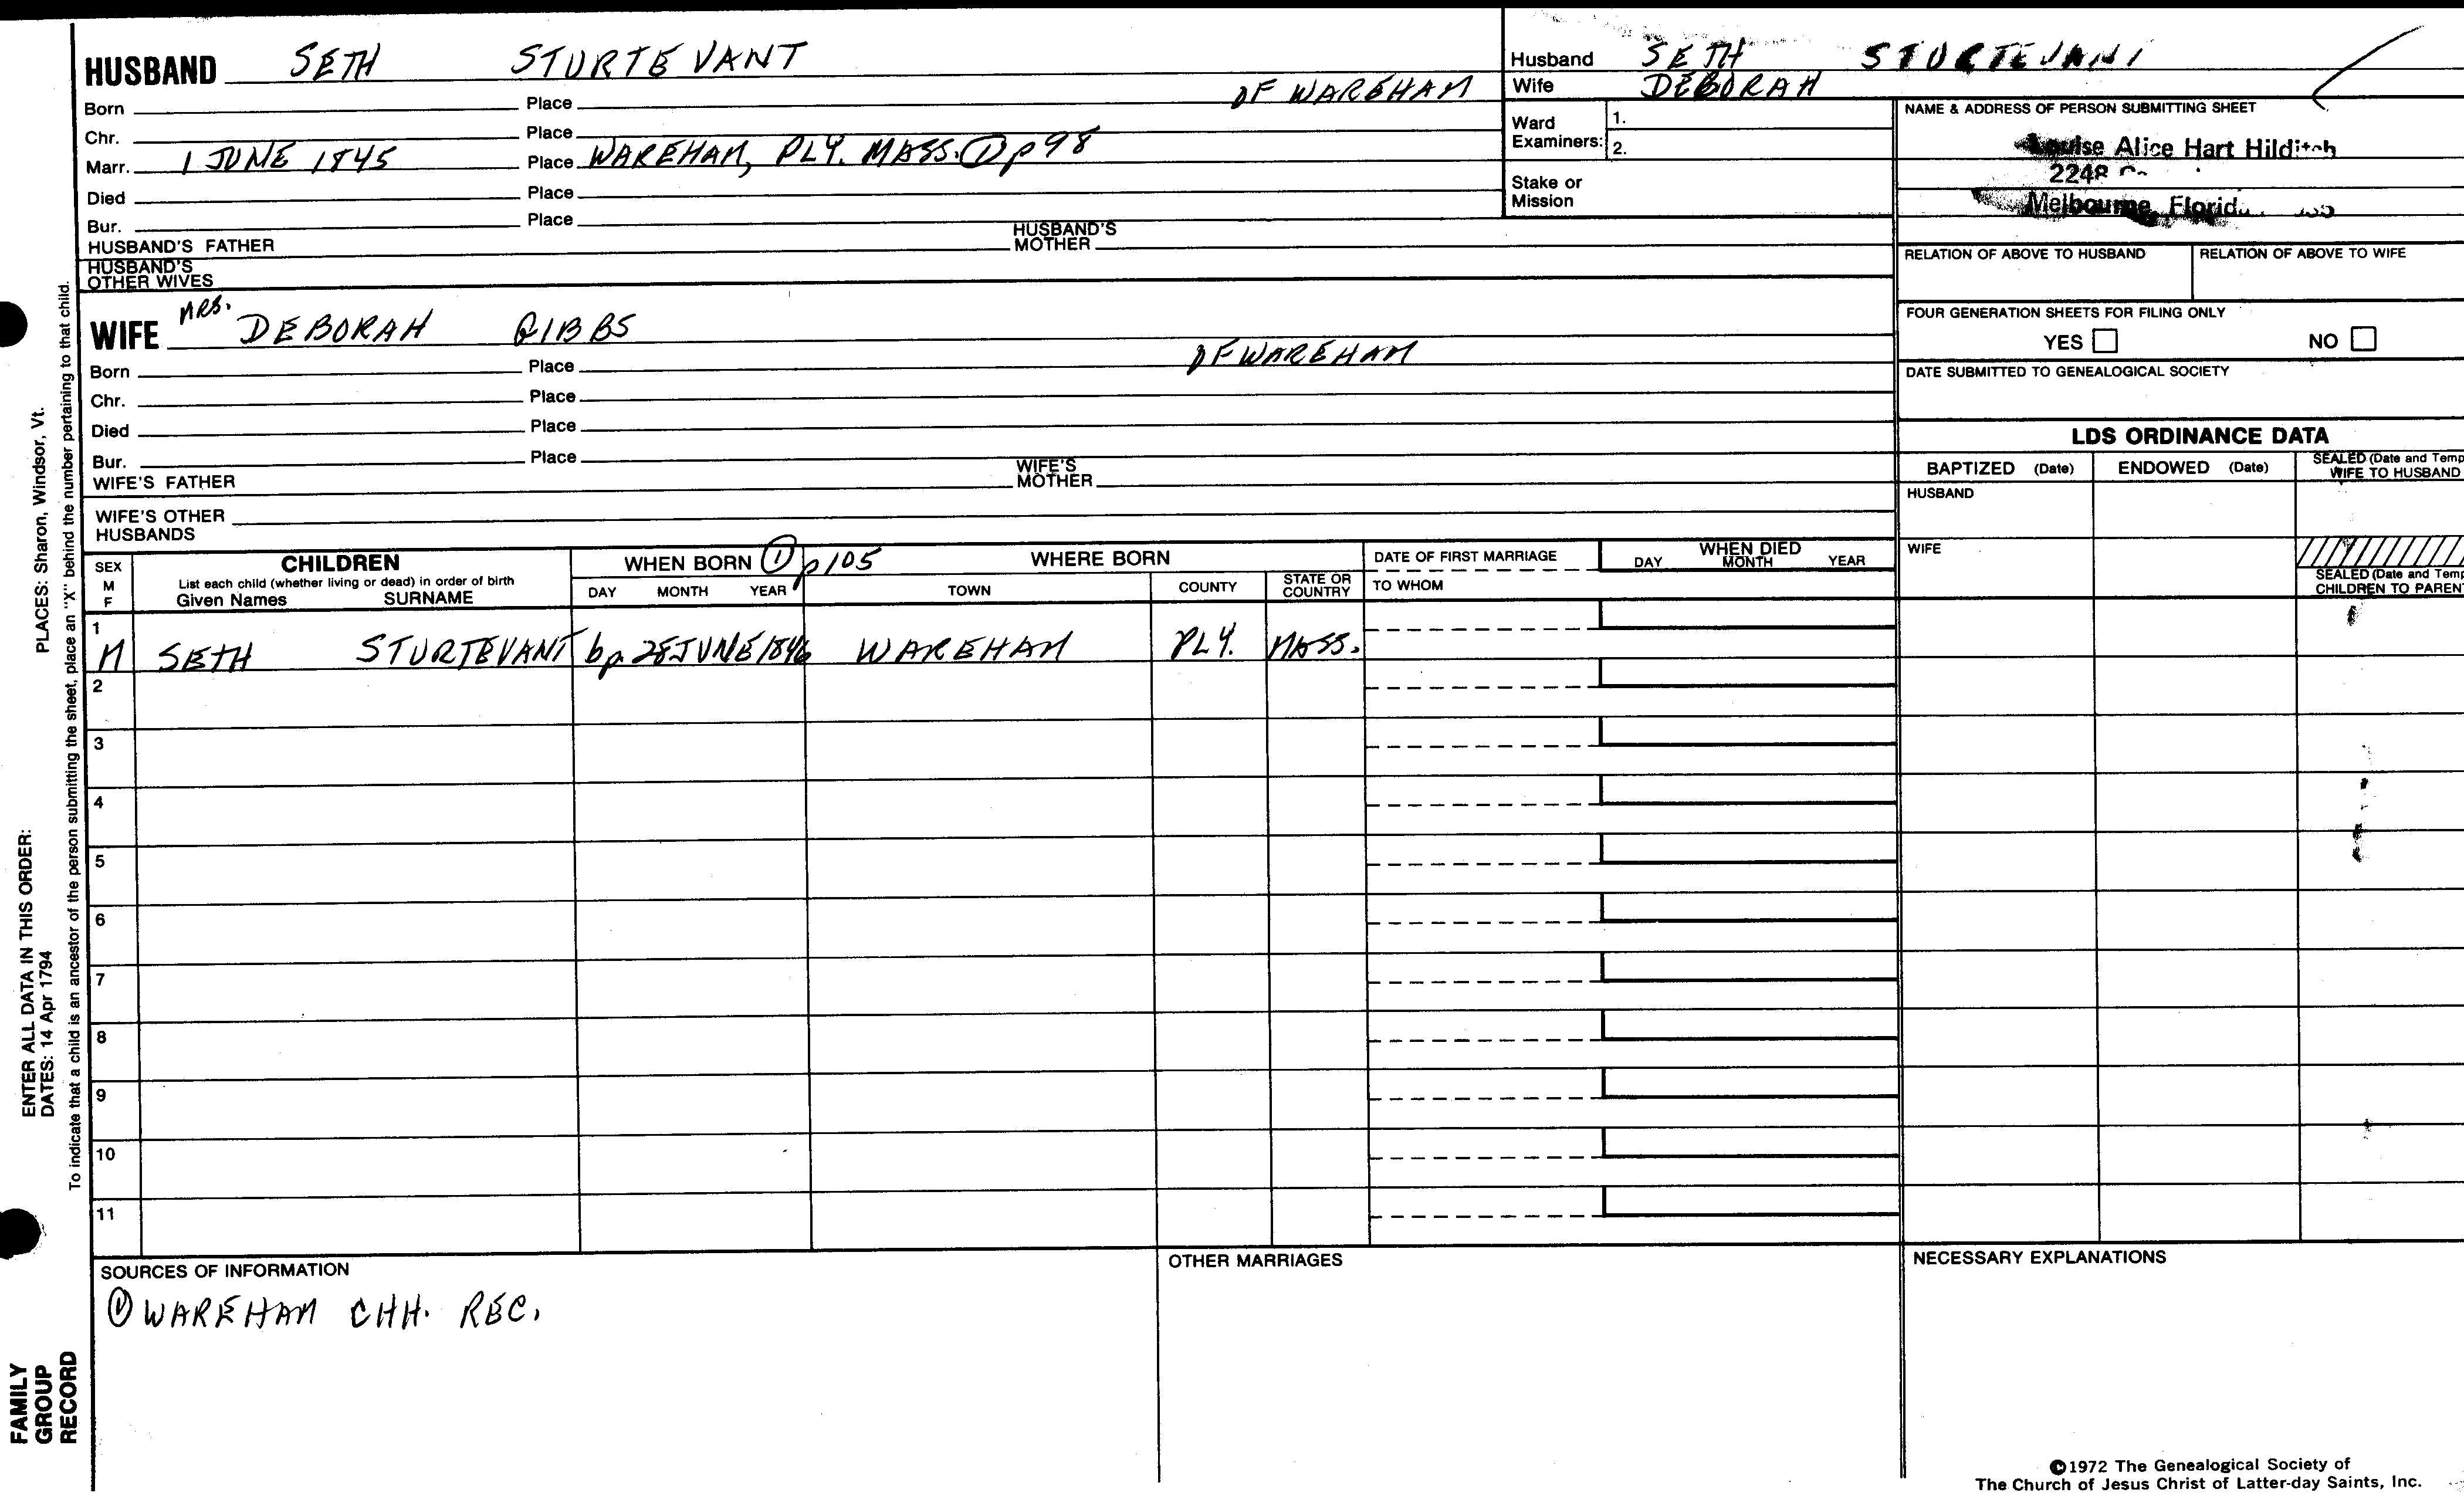 HUSBAND SETH STURTEVANT
OF WAREHAM
Born Place
Chr. Place
Marr. 1 JUNE 1845 Place WAREHAM, PLY. MASS. ① p 98
Died Place
Bur. Place
HUSBAND'S FATHER HUSBAND'S MOTHER
HUSBAND'S OTHER WIVES
WIFE MRS. DEBORAH GIBBS
OF WAREHAM
Born Place
Chr. Place
Died Place
Bur. Place
WIFE'S FATHER WIFE'S MOTHER
WIFE'S OTHER HUSBANDS
Husband SETH STURTEVANT
Wife DEBORAH
Ward Examiners: 1.
2.
Stake or Mission
NAME & ADDRESS OF PERSON SUBMITTING SHEET
Louise Alice Hart Hilditch
2248
Melbourne, Florida
RELATION OF ABOVE TO HUSBAND RELATION OF ABOVE TO WIFE
FOUR GENERATION SHEETS FOR FILING ONLY
YES NO
DATE SUBMITTED TO GENEALOGICAL SOCIETY
LDS ORDINANCE DATA
BAPTIZED (Date) ENDOWED (Date) SEALED (Date and Temp
WIFE TO HUSBAND
HUSBAND
WIFE
SEALED (Date and Temp
CHILDREN TO PARENT
SEX M F CHILDREN WHEN BORN ① p 105 WHERE BORN DATE OF FIRST MARRIAGE WHEN DIED
List each child (whether living or dead) in order of birth
Given Names SURNAME DAY MONTH YEAR TOWN COUNTY STATE OR COUNTRY TO WHOM DAY MONTH YEAR
1
M SETH STURTEVANT bp 28 JUNE 1846 WAREHAM PLY. MASS.
2
3
4
5
6
7
8
9
10
11
SOURCES OF INFORMATION OTHER MARRIAGES NECESSARY EXPLANATIONS
① WAREHAM CHH. REC.
©1972 The Genealogical Society of
The Church of Jesus Christ of Latter-day Saints, Inc.
FAMILY
GROUP
RECORD
ENTER ALL DATA IN THIS ORDER:
DATES: 14 Apr 1794 PLACES: Sharon, Windsor, Vt.
To indicate that a child is an ancestor of the person submitting the sheet, place an "X" behind the number pertaining to that child.